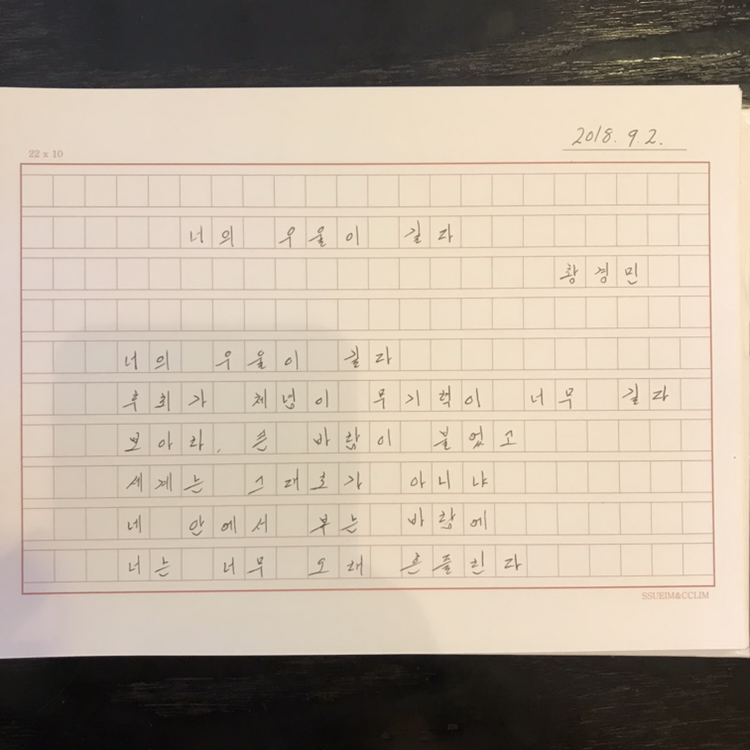 2018. 9 2.
22 x 10
너의 우울이 길다
황경민
너의 우울이 길다
후회가 체념이 무기력이 너무 길다
보아라. 큰 바람이 불었고
세계는 그대로가 아니냐
네 안에서 부는 바람에
너는 너무 오래 흔들린다
SSUEIM&CCLIM